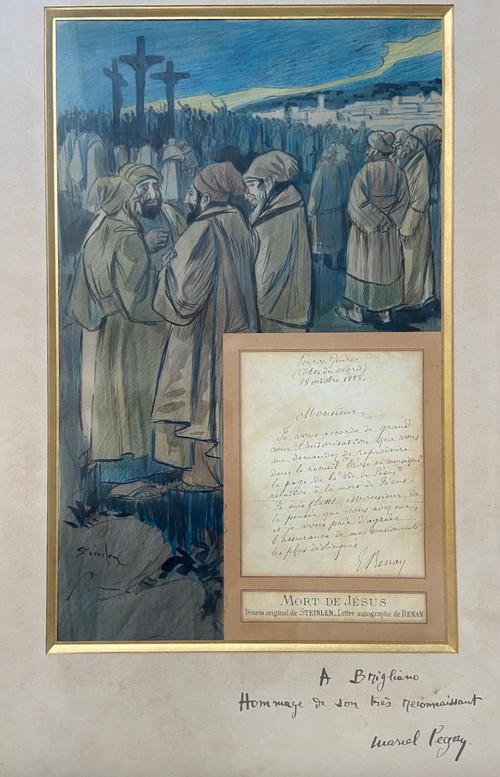 Steinlen
Perros Guirec
(Côtes du Nord)
18 octobre 1888.
Monsieur
Je vous accorde de grand
cœur l'autorisation que vous
me demandez de reproduire
dans le recueil "Prose et musique"
la page de la "Vie de Jésus"
relative à la mort de Jésus.
Je suis flatté, Monsieur, de
la pensée que vous avez eue,
et je vous prie d'agréer
l'assurance de mes sentiments
les plus distingués
E Renan
MORT DE JÉSUS
Dessin original de STEINLEN_Lettre autographe de RENAN
A Brigliano
Hommage de son très reconnaissant
Marcel Pegay